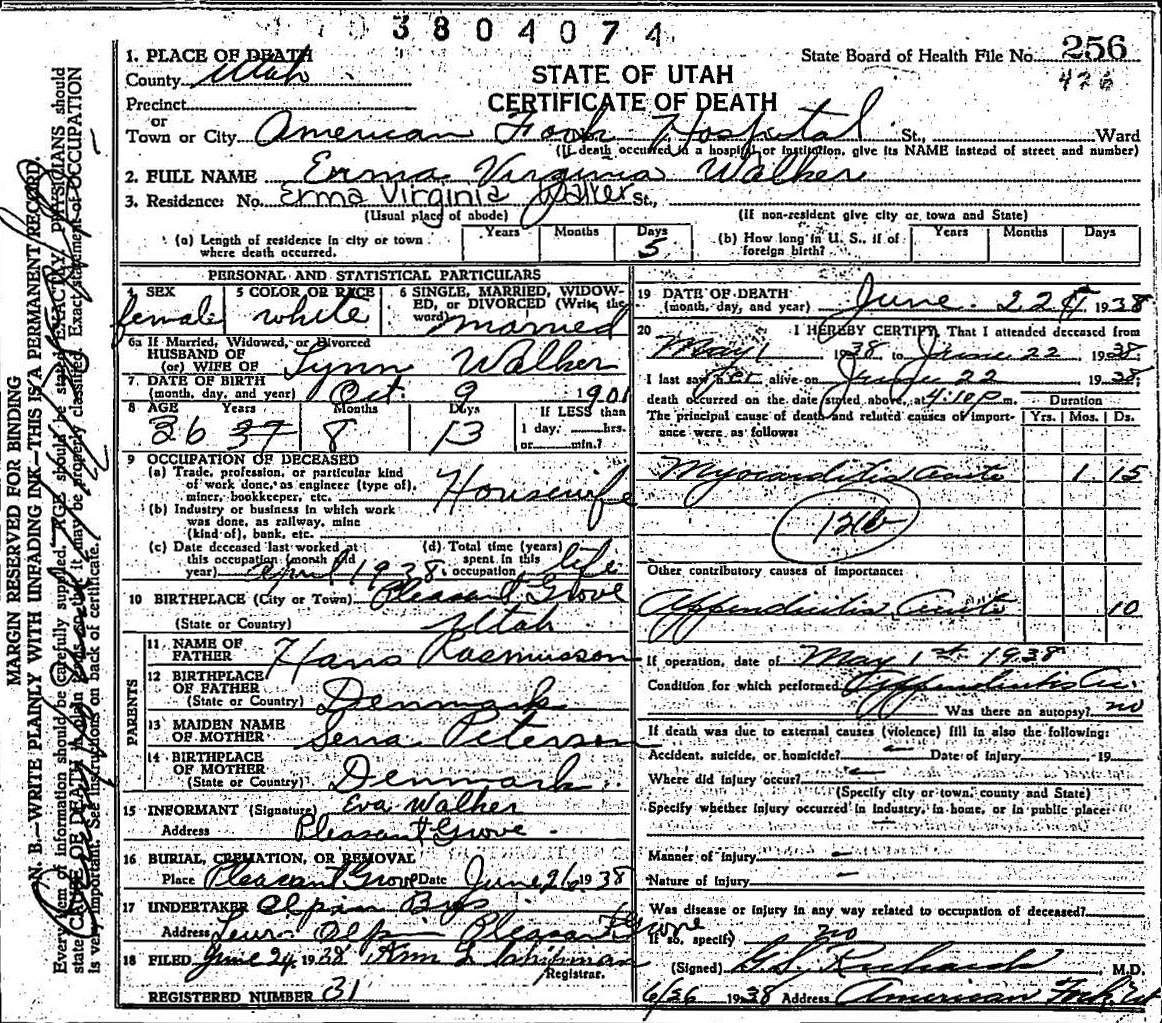 3804074
1. PLACE OF DEATH
State Board of Health File No. 256
County Utah
STATE OF UTAH
426
Precinct
CERTIFICATE OF DEATH
or
Town or City American Fork Hospital St., Ward
(If death occurred in a hospital or institution, give its NAME instead of street and number)
2. FULL NAME Erma Virginia Walker
3. Residence: No. Erma Virginia Walker St.,
(Usual place of abode) (If non-resident give city or town and State)
(a) Length of residence in city or town where death occurred. Years Months Days 5
(b) How long in U. S., if of foreign birth? Years Months Days
PERSONAL AND STATISTICAL PARTICULARS
4 SEX female
5 COLOR OR RACE white
6 SINGLE, MARRIED, WIDOWED, or DIVORCED (Write the word) married
6a If Married, Widowed, or Divorced
HUSBAND OF
(or) WIFE OF Lynn Walker
7. DATE OF BIRTH
(month, day, and year) Oct. 9 1901
8 AGE Years Months Days If LESS than
36 37 8 13 1 day, hrs.
or min.?
9 OCCUPATION OF DECEASED
(a) Trade, profession, or particular kind
of work done, as engineer (type of),
miner, bookkeeper, etc. Housewife
(b) Industry or business in which work
was done, as railway, mine
(kind of), bank, etc.
(c) Date deceased last worked at
this occupation (month and
year) April 1938
(d) Total time (years)
spent in this
occupation life
10 BIRTHPLACE (City or Town) Pleasant Grove
(State or Country) Utah
PARENTS
11. NAME OF
FATHER Hans Rasmusson
12 BIRTHPLACE
OF FATHER
(State or Country) Denmark
13 MAIDEN NAME
OF MOTHER Sena Peterson
14 BIRTHPLACE
OF MOTHER
(State or Country) Denmark
15 INFORMANT (Signature) Eva Walker
Address Pleasant Grove
16 BURIAL, CREMATION, OR REMOVAL
Place Pleasant Grove Date June 26 1938
17 UNDERTAKER
Address Pleasant Grove
18 FILED June 24, 1938
Registrar.
REGISTERED NUMBER 31
19 DATE OF DEATH
(month, day, and year) June 22 1938
20 I HEREBY CERTIFY, That I attended deceased from
May 1 1938 to June 22 1938;
I last saw her alive on June 22 1938;
death occurred on the date stated above, at 4:10 p.m. Duration
The principal cause of death and related causes of importance were as follows: Yrs. Mos. Ds.
Myocarditis Acute 1 15
Other contributory causes of importance:
Appendicitis Acute 10
If operation, date of May 1st 1938
Condition for which performed Appendicitis Ac.
Was there an autopsy? no
If death was due to external causes (violence) fill in also the following:
Accident, suicide, or homicide? Date of injury 19
Where did injury occur?
(Specify city or town, county and State)
Specify whether injury occurred in industry, in home, or in public place:
Manner of injury
Nature of injury
Was disease or injury in any way related to occupation of deceased?
If so, specify no
(Signed) G.S. Richards, M.D.
1938 Address American Fork, Ut
MARGIN RESERVED FOR BINDING
N. B.—WRITE PLAINLY WITH UNFADING INK—THIS IS A PERMANENT RECORD.
Every item of information should be carefully supplied. AGE should be stated EXACTLY. PHYSICIANS should
state CAUSE OF DEATH in plain terms, so that it may be properly classified. Exact statement of OCCUPATION
is very important. See instructions on back of certificate.